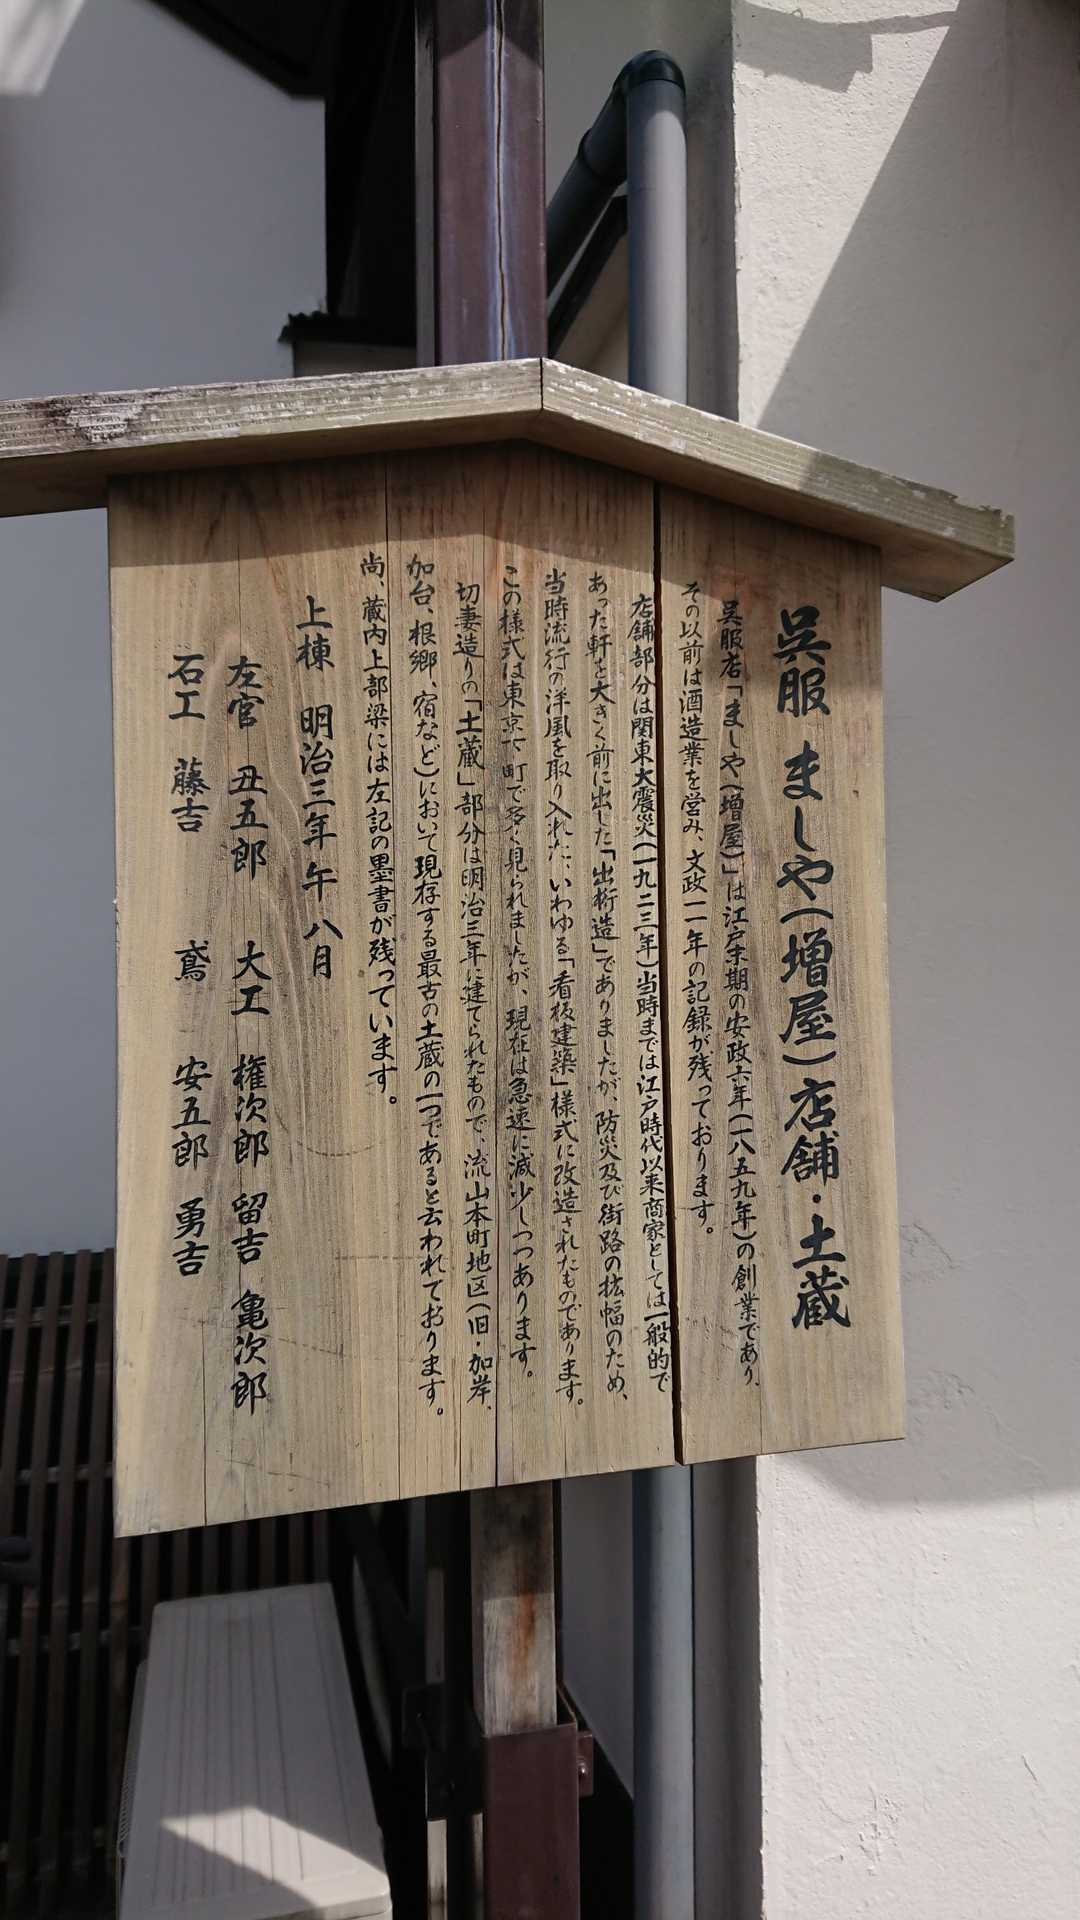 呉服 ましや(増屋)店舗・土蔵
呉服店「ましや(増屋)」は江戸末期の安政六年(一八五九年)の創業であり、
その以前は酒造業を営み、文政一一年の記録が残っております。
店舗部分は関東大震災(一九二三年)当時までは江戸時代以来商家としては一般的で
あった軒を大きく前に出した「出桁造」でありましたが、防災及び街路の拡幅のため、
当時流行の洋風を取り入れた、いわゆる「看板建築」様式に改造されたものであります。
この様式は東京下町で多く見られましたが、現在は急速に減少しつつあります。
切妻造りの「土蔵」部分は明治三年に建てられたもので、流山本町地区(旧・加岸、
加台、根郷、宿など)において現存する最古の土蔵の一つであると云われております。
尚、蔵内上部梁には左記の墨書が残っています。
上棟 明治三年午八月
左官 丑五郎 大工 権次郎 留吉 亀次郎
石工 藤吉 鳶 安五郎 勇吉